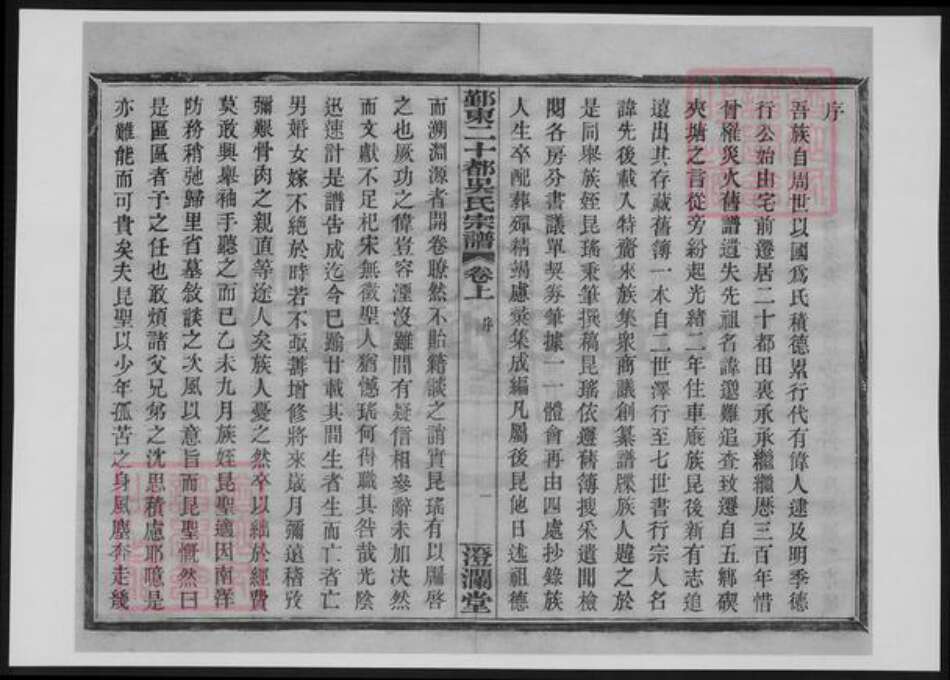 序
吾族自周世以國爲氏積德累行代有偉人逮及明季德
行公始由宅前遷居二十都田裏承承繼繼歷三百年惜
曾罹災火舊譜遺失先祖名諱邈難追查致遷自五鄉碶
夾塘之言從旁紛起光緒二年住車廠族昆後新有志追
遠出其存藏舊簿一本自二世澤行至七世書行宗人名
諱先後載入特齎來族集衆商議創纂譜牒族人韙之於
是同舉族姪昆瑤秉筆撰稿昆瑤依遵舊簿搜采遺聞檢
閱各房分書議單契券筆據一一體會再由四處抄錄族
人生卒配葬殫精竭慮彙集成編凡屬後昆他日述祖德
鄞東二十都吳氏宗譜 卷上 序 一 澄瀾堂
而溯淵源者開卷瞭然不貽籍談之誚實昆瑤有以牖啓
之也厥功之偉豈容湮沒雖間有疑信相參辭未加決然
而文獻不足杞宋無徵聖人猶憾瑤何得職其咎哉光陰
迅速計是譜告成迄今已踰廿載其間生者生而亡者亡
男婚女嫁不絕於時若不亟籌增修將來歲月彌遠稽攷
彌艱骨肉之親頂等途人矣族人憂之然卒以絀於經費
莫敢興舉袖手聽之而已乙未九月族姪昆聖適因南洋
防務稍弛歸里省墓敘談之次風以意旨而昆聖慨然曰
是區區者子之任也敢煩諸父兄弟之沈思積慮耶噫是
亦難能而可貴矣夫昆聖以少年孤苦之身風塵奔走幾